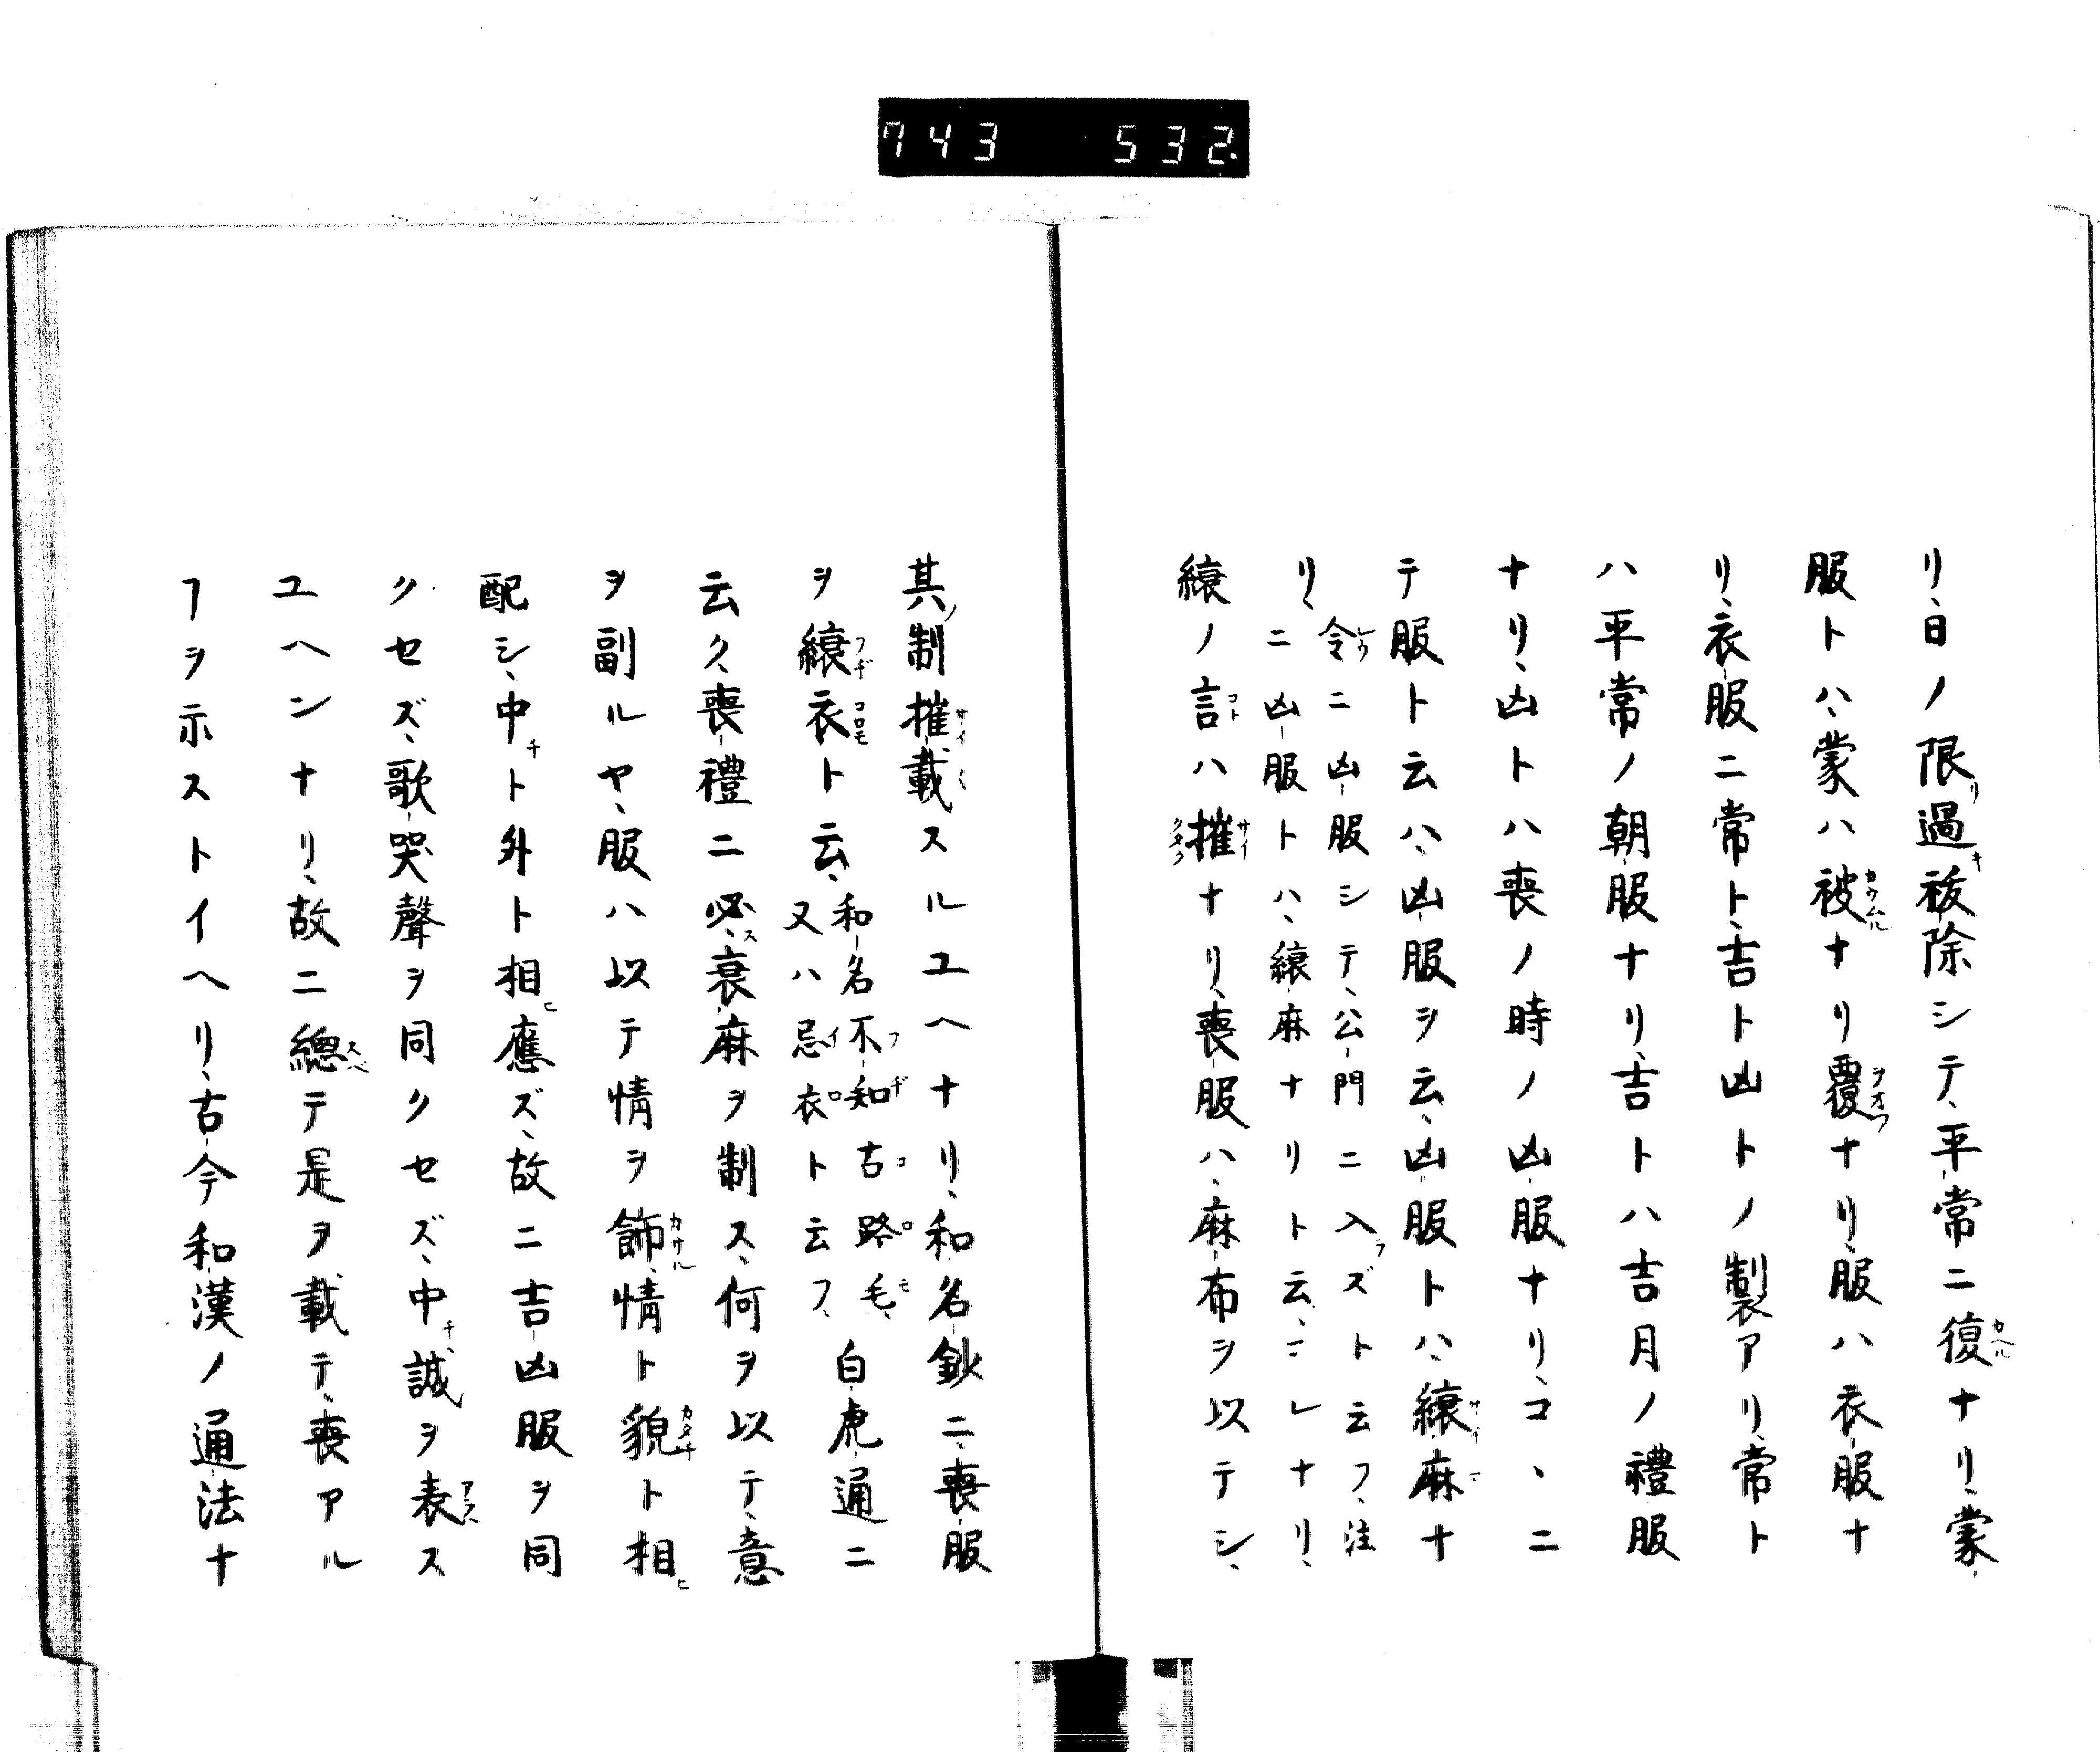 743 532.
リ、日ノ限リ過キ祓除シテ、平常ニ復ナリ、蒙
服トハ、蒙ハ被ナリ覆ナリ、服ハ衣服ナ
リ、衣服ニ常ト、吉ト凶トノ製アリ、常ト
ハ平常ノ朝服ナリ、吉トハ吉月ノ禮服
ナリ、凶トハ喪ノ時ノ凶服ナリ、コヽニ
テ服ト云ハ、凶服ヲ云、凶服トハ、縗麻ナ
リ、令ニ凶服シテ、公門ニ入ラズト云フ、注
ニ凶服トハ、縗麻ナリト云、コレナリ、
縗ノ言ハ摧ナリ、喪服ハ、麻布ヲ以テシ、
其ノ制摧載スルユヘナリ、和名鈔ニ、喪服
ヲ縗衣ト云、和名不知古路毛、
又ハ忌衣ト云フ、白虎通ニ
云ク、喪禮ニ必ス衰麻ヲ制ス、何ヲ以テ、意
ヲ副ルヤ、服ハ以テ情ヲ飾、情ト貌ト相ヒ
配シ、中チト外ト相ヒ應ズ、故ニ吉凶服ヲ同
クセズ、歌哭聲ヲ同クセズ、中チ誠ヲ表ス
ユヘンナリ、故ニ總テ是ヲ載テ、喪アル
フヲ示ストイヘリ、古今和漢ノ通法ナ